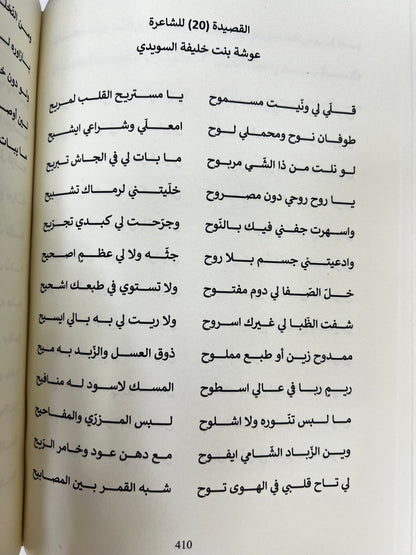 القصيدة (20) للشاعرة
عوشة بنت خليفة السويدي
قلي لي ونيت مسموح يا مستريح القلب لمريح
طوفان نوح ومحملي لوح امعلي وشراعي ايشيح
لو نلت من ذا الشي مربوح ما بات لي في الجاش تبريح
يا روح روحي دون مصروح خليتني لرماك تشبيح
واسهرت جفني فيك بالنوح وجزحت لي كبدي تجزيح
وادعيتني جسم بلا روح جثه ولا لي عظم اصحيح
خل الصفا لي دوم مفتوح ولا تستوي في طبعك اشحيح
شفت الظبا لي غيرك اسروح ولا ريت لي به بالي ايسيح
ممدوح زين أو طبع مملوح ذوق العسل والزبد به ميح
ريم ربا في عالي اسطوح المسك لاسود له منافيح
ما لبس تنوره ولا اشلوح لبس المزري والمفاحيح
وين الزباد الشامي ايفوح مع دهن عود وخامر الريح
لي تاح قلبي في الهوى توح شبه القمر بين المصابيح
410